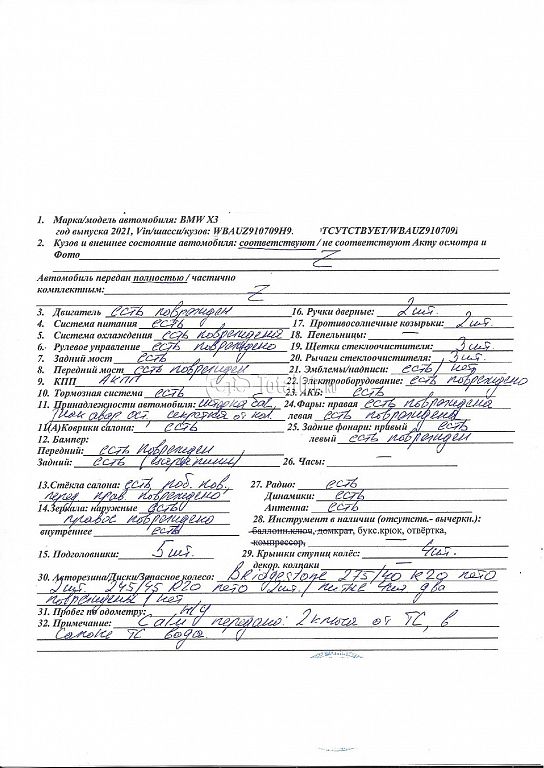 1. Марка/модель автомобиля: BMW X3
год выпуска 2021, Vin/шасси/кузов: WBAUZ910709H9. ТСУТСТВУЕТ/WBAUZ910709
2. Кузов и внешнее состояние автомобиля: соответствуют / не соответствуют Акту осмотра и
Фото Z
Автомобиль передан полностью / частично
комплектным: Z
3. Двигатель есть поврежден
4. Система питания есть
5. Система охлаждения есть повреждена
6. Рулевое управление есть повреждено
7. Задний мост есть
8. Передний мост есть поврежден
9. КПП АКПП
10. Тормозная система есть
11. Принадлежности автомобиля:
знак авар ост. секретка от кол.
11(А)Коврики салона: есть
12. Бампер:
Передний: есть поврежден
Задний: есть
13.Стёкла салона: есть лоб. пов.
перед прав повреждено
14.Зеркала: наружные есть
правое повреждено
внутреннее есть
15. Подголовники: 5 шт.
16. Ручки дверные: 2 шт.
17. Противосолнечные козырьки: 2 шт.
18. Пепельницы: —
19. Щетки стеклоочистителя: 3 шт.
20. Рычаги стеклоочистителя: 3 шт.
21. Эмблемы/надписи: есть / нет
22. Электрооборудование: есть повреждено
23. АКБ: есть
24.Фары: правая есть повреждена
левая есть повреждена
25. Задние фонари: правый есть
левый есть поврежден
26. Часы: —
27. Радио: есть
Динамики: есть
Антенна: есть
28. Инструмент в наличии (отсутств.- вычеркн.):
баллонн.ключ, домкрат, букс.крюк, отвёртка,
компрессор,
29. Крышки ступиц колёс: 4 шт.
декор. колпаки —
30. Авторезина/Диски/Запасное колесо: Bridgestone 275/40 R20 лето
2 шт. 245/45 R20 лето 2 шт. / литые 4 шт два
повреждены / нет
31. Пробег по одометру: н/у
32. Примечание: С а/м передано: 2 ключа от ТС, в
салоне ТС вода